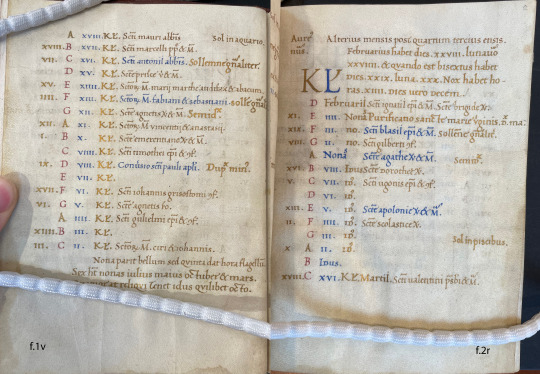 A xviii. KL. Scti mauri abbis. Sol in aquario.
xviii. B xvii. KL. Scti marcelli pp & M.
vii. C xvi. KL. Scti antonii abbis. Sollemne gnaliter.
D xv. KL. Scte prisce v & M.
xv. E xiiii. KL. Sctoꝝ. M. marij marthe audifax & abacum.
iiii. F xiii. KL. Sctoꝝ. M. fabiani & sebastiani. sollẽ gñal
G xii. KL. Scte agnetis v & M. Semid.
xii. A xi. KL. Sctoꝝ M. vincentij & anastasii.
i. B x. KL. Scte emerentiane v & M.
C viiii. KL. Scti timothei epi & ɔf.
ix. D viii. KL. Conuersio scti pauli apli. Dup. min.
E vii. KL.
xvii. F vi. KL. Scti iohannis grisostomi ɔf.
vi. G v. KL. Scte agnetis
A iiii. KL. Scti gulielmi epi & ɔf.
xiiii. B iii. KL.
iii. C ii. KL. Sctoꝝ. M. ciri & iohannis.
Nona parit bellum sed quinta dat hora flagellum
Sex habet nonas iulius maius october & mars.
reliqui tenet idus quilibet octo.
f.1v
Aure nus. Alterius mensis post quartum tercius ensis.
Februarius habet dies. xxviii. luna uero
xxviiii. & quando est bisextus habet
KL dies. xxix. luna. xxx. Nox habet ho
ras. xiiii. Dies uero decem.
D Februarii. Scti ignatii epi & M. Scte brigide v.
xi. E iiii. Nonas Purificatio sancte marie uirginis. d. ma.
xix. F iii. no. Scti blasii epi & M. Sollẽne gñalit.
viii. G ii. no. Scti gilberti ɔf.
A Nonas Scte agathe v & M. Semid.
xvi. B viii. Idus Scte dorothee v.
v. C vii. id. Scti ugonis epi & ɔf.
D vi. id.
xiii. E v. id. Scte apolonie v & M.
ii. F iiii. id. Scte scolastice v.
G iii. id. Sol in piscibus.
x A ii. id.
B Idus.
xviii. C xvi. KL. Martii. Scti ualentini psbi & M.
f.2r